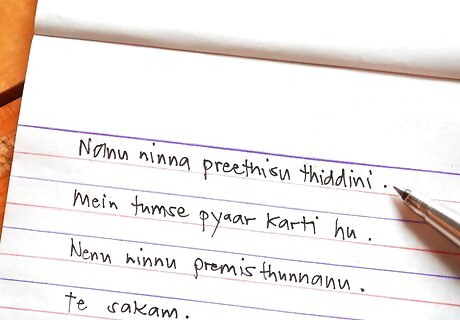 Nanu ninna preethisu thiddini.
Mein tumse pyaar karti hu.
Nenu ninnu premisthunnanu.
te sakam.